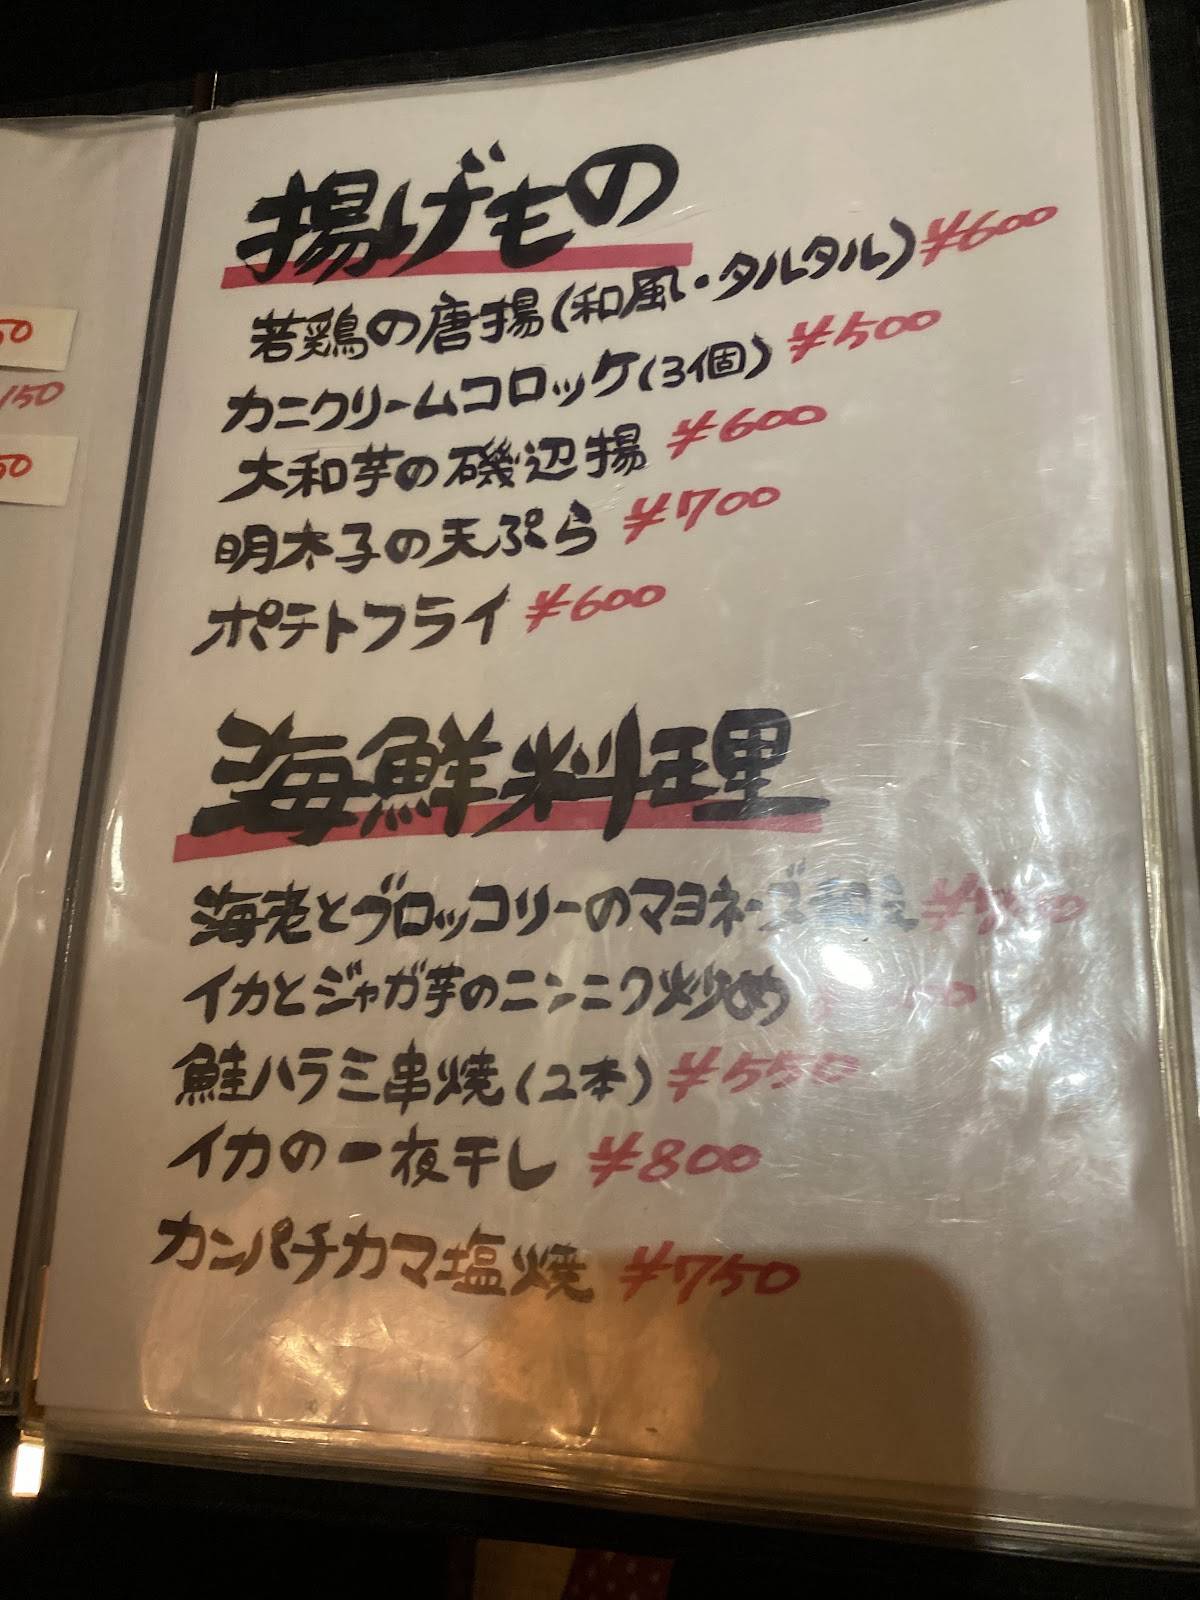 揚げもの
若鶏の唐揚(和風・タルタル) ¥600
カニクリームコロッケ(3個) ¥500
大和芋の磯辺揚 ¥600
明太子の天ぷら ¥700
ポテトフライ ¥600
海鮮料理
海老とブロッコリーのマヨネーズ和え
イカとジャガ芋のニンニク炒め
鮭ハラミ串焼(2本) ¥550
イカの一夜干し ¥800
カンパチカマ塩焼 ¥750